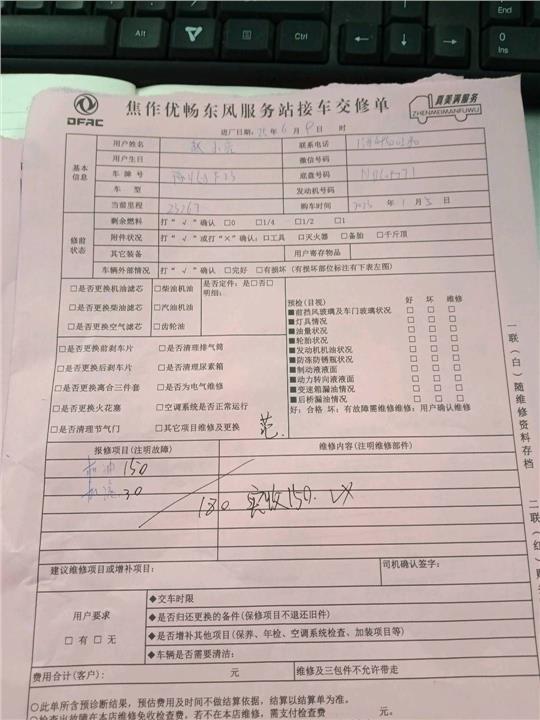 Alt
Ctrl
End
0
Ins
DFAC
焦作优畅东风服务站接车交修单
真美满服务
ZHENMEIMANFUWU
进厂日期：25年6月9日 时
基本信息
用户姓名
联系电话
用户生日
微信号码
车牌号
底盘号码
车型
发动机号码
当前里程 25267
购车时间 2023年1月5日
修前状态
剩余燃料 打“√”确认 □0 □1/4 □1/2 □1
附件状况 打“√”或打“×”确认：□工具 □灭火器 □备胎 □千斤顶
其它装备 用户寄存物品
车辆外部情况 打“√”确认 □完好 □有损坏（有损坏部位标注有下表左图）
□是否更换机油滤芯 □柴油机油 是否定件：是□否□
明细：
□是否更换柴油滤芯 □汽油机油
□是否更换空气滤芯 □齿轮油
□是否更换前刹车片 □是否清理排气筒
□是否更换后刹车片 □是否清理尿素箱
□是否更换离合三件套 □是否为电气维修
□是否更换火花塞 □空调系统是否正常运行
□是否清理节气门 □其它项目维修及更换
范
预检(目视) 好 坏 维修
■前挡风玻璃及车门玻璃状况 □ □ □
■灯具情况 □ □ □
■油量状况 □ □ □
■轮胎状况 □ □ □
■发动机机油状况 □ □ □
■防冻防锈瓶状况 □ □ □
■制动液液面 □ □ □
■动力转向液液面 □ □ □
■变速箱漏油情况 □ □ □
■后桥漏油情况 □ □ □
好：合格 坏：有故障需维修维修：用户确认维修
报修项目(注明故障) 维修内容(注明维修部件)
机油 150
机滤 30
180 实收150.
建议维修项目或增补项目： 司机确认签字：
用户要求
□有 □无
◆交车时限
◆是否归还更换的备件(保修项目不退还旧件)
◆是否增补其他项目(保养、年检、空调系统检查、加装项目等)
◆车辆是否需要清洁：
费用合计(客户)： 元 维修及三包件不允许带走
○此单所含预诊断结果，预估费用及时间不做结算依据，结算以结算单为准。
○检查出故障在本店维修免收检查费，若不在本店维修，需支付检查费 元。
一联(白)随维修资料存档
二联(红)